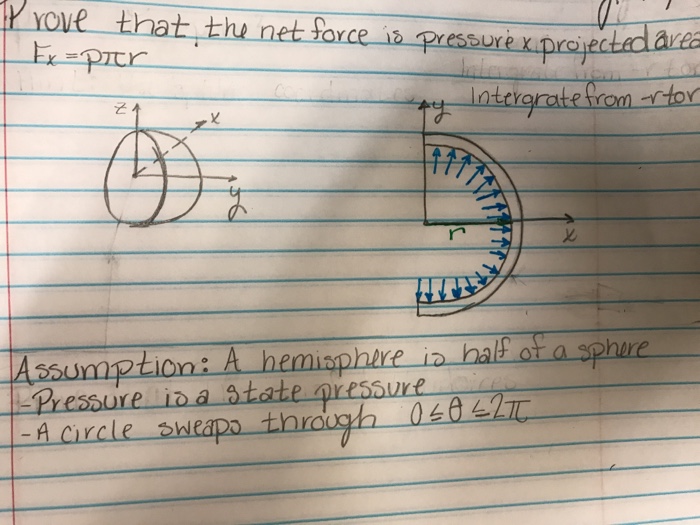 Prove that, the net force is pressure x projected area
Fx = pπr
Intergrate from -r to r
z
x
y
y
r
x
Assumption: A hemisphere is half of a sphere
-Pressure is a state pressure
-A circle sweaps through 0≤θ≤2π